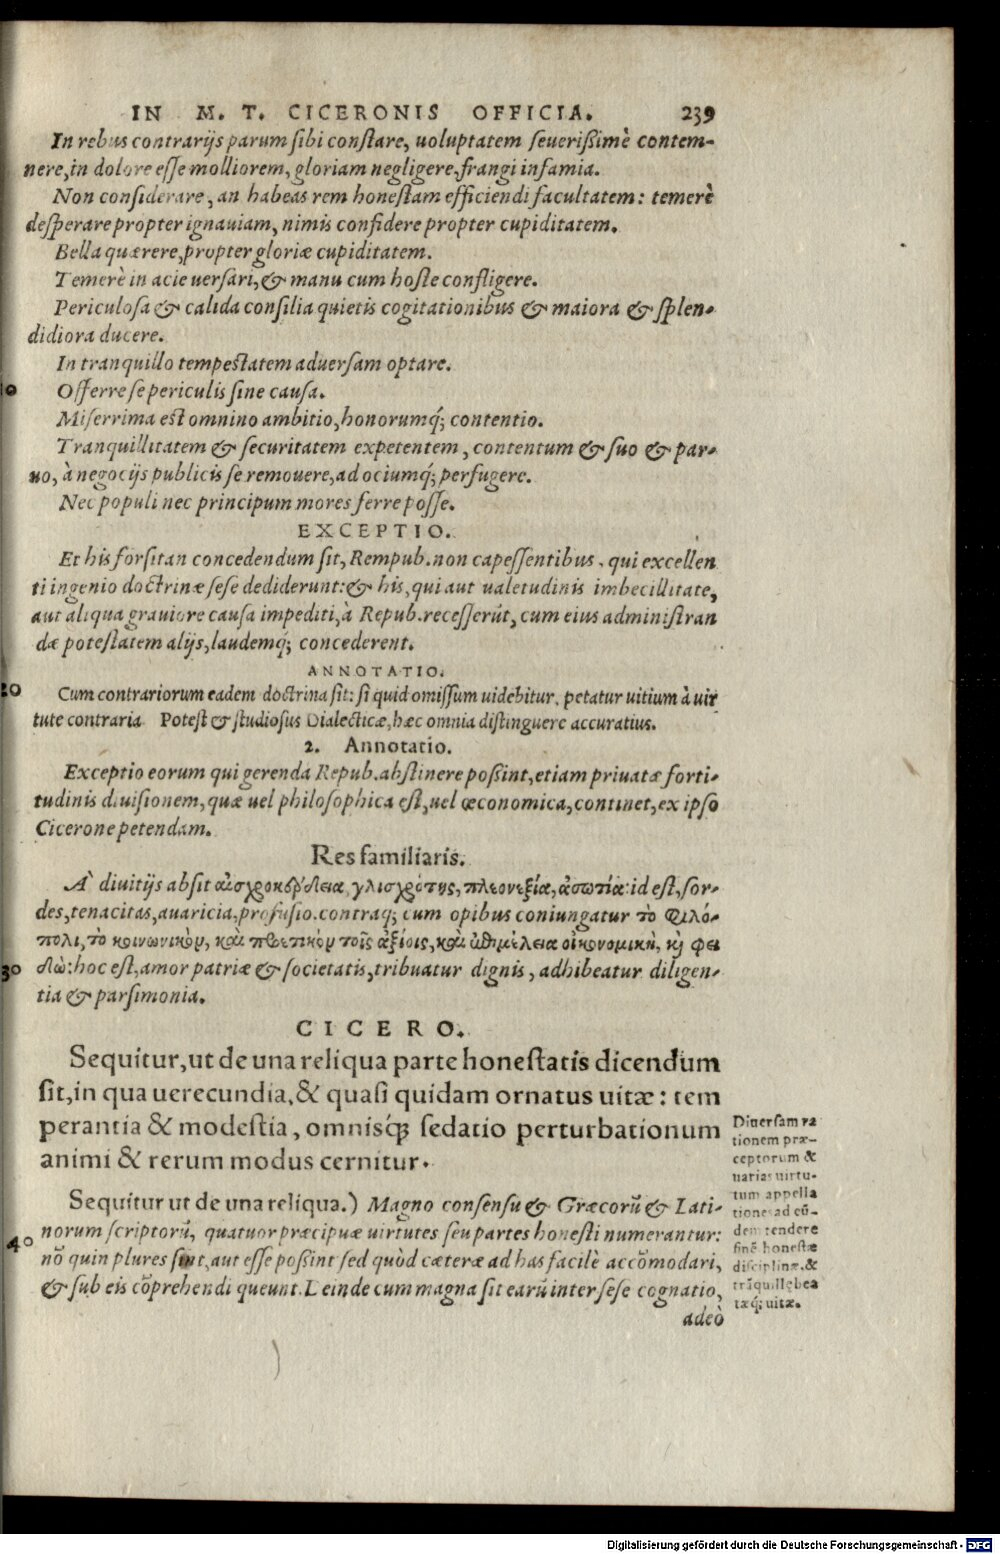 IN M. T. CICERONIS OFFICIA. 239
In rebus contrarijs parum sibi constare, uoluptatem seuerißimè contem-
nere, in dolore esse molliorem, gloriam negligere, frangi infamia.
Non considerare, an habeas rem honestam efficiendi facultatem: temerè
desperare propter ignauiam, nimis confidere propter cupiditatem.
Bella quærere, propter gloriæ cupiditatem.
Temerè in acie uersari, & manu cum hoste confligere.
Periculosa & calida consilia quietis cogitationibus & maiora & splen-
didiora ducere.
In tranquillo tempestatem aduersam optare.
10 Offerre se periculis sine causa.
Miserrima est omnino ambitio, honorumq́; contentio.
Tranquillitatem & securitatem expetentem, contentum & suo & par-
uo, à negocijs publicis se remouere, ad ociumq́; perfugere.
Nec populi nec principum mores ferre posse.
EXCEPTIO.
Et his forsitan concedendum sit, Rempub. non capessentibus, qui excellen
ti ingenio doctrinæ sese dediderunt: & his, qui aut ualetudinis imbecillitate,
aut aliqua grauiore causa impediti, à Repub. recesserūt, cum eius administran
dæ potestatem alijs, laudemq́; concederent.
ANNOTATIO.
20 Cum contrariorum eadem doctrina sit: si quid omissum uidebitur, petatur uitium à uir
tute contraria Potest & studiosus Dialecticæ, hæc omnia distinguere accuratius.
2. Annotatio.
Exceptio eorum qui gerenda Repub. abstinere poßint, etiam priuatæ forti-
tudinis diuisionem, quæ uel philosophica est, uel œconomica, continet, ex ipso
Cicerone petendam.
Res familiaris.
A' diuitijs absit αἰσχροκέρδεια, γλισχρότης, πλεονεξία, ἀσωτία: id est, sor-
des, tenacitas, auaricia, profusio. contraq; cum opibus coniungatur τὸ φιλό-
πολι, τὸ κοινωνικὸν, καὶ πθετικὸν τοῖς ἀξίοις, καὶ ἀθιμέλεια οἰκονομικὴ, κὴ φει
30 δὼ: hoc est, amor patriæ & societatis, tribuatur dignis, adhibeatur diligen-
tia & parsimonia.
CICERO.
Sequitur, ut de una reliqua parte honestatis dicendum
sit, in qua uerecundia, & quasi quidam ornatus uitæ: tem
perantia & modestia, omnisq́; sedatio perturbationum
animi & rerum modus cernitur.
Sequitur ut de una reliqua.) Magno consensu & Græcorū & Lati-
norum scriptorū, quatuor præcipuæ uirtutes seu partes honesti numerantur:
40 nō quin plures sint, aut esse poßint sed quòd cæteræ ad has facilè accōmodari,
& sub eis cōprehendi queunt. Deinde cum magna sit earū inter sese cognatio,
adeò
Diuersam ra
tionem præ-
ceptorum &
uarias uirtu-
tum appella
tiones ad eū-
dem tendere
finē honestæ
disciplinæ, &
trāquillę bea
tæq́; uitæ.
Digitalisierung gefördert durch die Deutsche Forschungsgemeinschaft - DFG